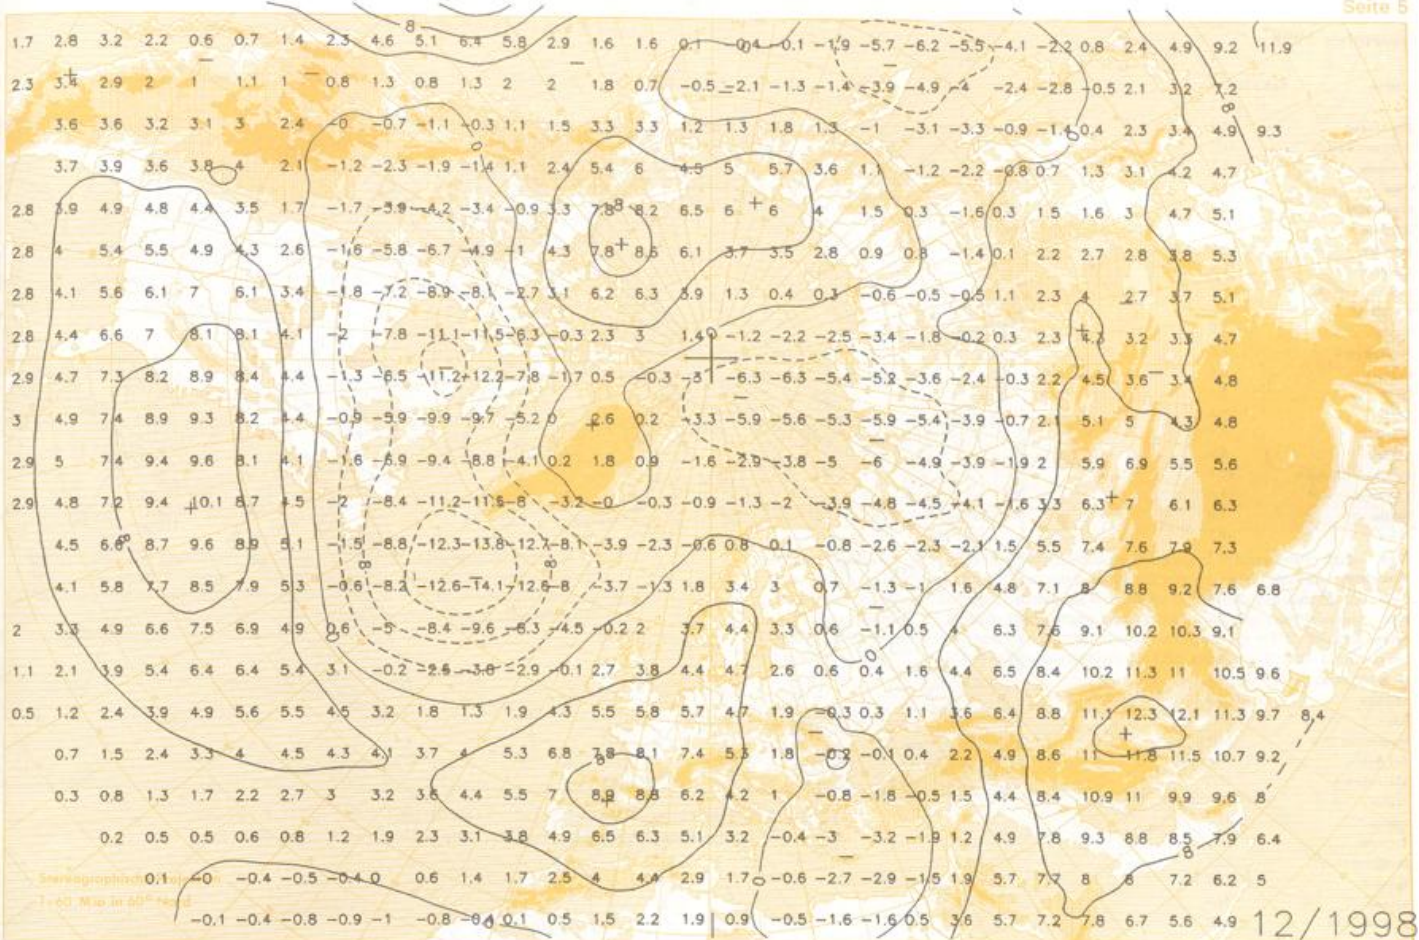 Seite 5
1.7 2.8 3.2 2.2 0.6 0.7 1.4 2.3 4.6 5.1 6.4 5.8 2.9 1.6 1.6 0.1 -0.4 -0.1 -1.9 -5.7 -6.2 -5.5 -4.1 -2.2 0.8 2.4 4.9 9.2 11.9
2.3 3.4 2.9 2 1 1.1 1 0.8 1.3 0.8 1.3 2 2 1.8 0.7 -0.5 -2.1 -1.3 -1.4 -3.9 -4.9 -4 -2.4 -2.8 -0.5 2.1 3.2 7.2
3.6 3.6 3.2 3.1 3 2.4 -0 -0.7 -1.1 -0.3 1.1 1.5 3.3 3.3 1.2 1.3 1.8 1.3 -1 -3.1 -3.3 -0.9 -1.4 0.4 2.3 3.4 4.9 9.3
3.7 3.9 3.6 3.8 4 2.1 -1.2 -2.3 -1.9 -1.4 1.1 2.4 5.4 6 4.5 5 5.7 3.6 1.1 -1.2 -2.2 -0.8 0.7 1.3 3.1 4.2 4.7
2.8 3.9 4.9 4.8 4.4 3.5 1.7 -1.7 -3.9 -4.2 -3.4 -0.9 3.3 7.8 8.2 6.5 6 6 4 1.5 0.3 -1.6 0.3 1.5 1.6 3 4.7 5.1
2.8 4 5.4 5.5 4.9 4.3 2.6 -1.6 -5.8 -6.7 -4.9 -1 4.3 7.8 8.6 6.1 3.7 3.5 2.8 0.9 0.8 -1.4 0.1 2.2 2.7 2.8 3.8 5.3
2.8 4.1 5.6 6.1 7 6.1 3.4 -1.8 -7.2 -8.9 -8.1 -2.7 3.1 6.2 6.3 3.9 1.3 0.4 0.3 -0.6 -0.5 -0.5 1.1 2.3 4 2.7 3.7 5.1
2.8 4.4 6.6 7 8.1 8.1 4.1 -2 -7.8 -11.1 -11.5 -6.3 -0.3 2.3 3 1.4 -1.2 -2.2 -2.5 -3.4 -1.8 -0.2 0.3 2.3 4.3 3.2 3.3 4.7
2.9 4.7 7.3 8.2 8.9 8.4 4.4 -1.3 -6.5 -11.2 -12.2 -7.8 -1.7 0.5 -0.3 -3 -6.3 -6.3 -5.4 -5.2 -3.6 -2.4 -0.3 2.2 4.5 3.6 3.4 4.8
3 4.9 7.4 8.9 9.3 8.2 4.4 -0.9 -5.9 -9.9 -9.7 -5.2 0 2.6 0.2 -3.3 -5.9 -5.6 -5.3 -5.9 -5.4 -3.9 -0.7 2.1 5.1 5 4.3 4.8
2.9 5 7.4 9.4 9.6 8.1 4.1 -1.6 -6.9 -9.4 -8.8 -4.1 0.2 1.8 0.9 -1.6 -2.9 -3.8 -5 -6 -4.9 -3.9 -1.9 2 5.9 6.9 5.5 5.6
2.9 4.8 7.2 9.4 10.1 8.7 4.5 -2 -8.4 -11.2 -11.6 -8 -3.2 -0 -0.3 -0.9 -1.3 -2 -3.9 -4.8 -4.5 -4.1 -1.6 3.3 6.3 7 6.1 6.3
4.5 6.6 8.7 9.6 8.9 5.1 -1.5 -8.8 -12.3 -13.8 -12.7 -8.1 -3.9 -2.3 -0.6 0.8 0.1 -0.8 -2.6 -2.3 -2.1 1.5 5.5 7.4 7.6 7.9 7.3
4.1 5.8 7.7 8.5 7.9 5.3 -0.6 -8.2 -12.6 -14.1 -12.6 -8 -3.7 -1.3 1.8 3.4 3 0.7 -1.3 -1 1.6 4.8 7.1 8 8.8 9.2 7.6 6.8
2 3.3 4.9 6.6 7.5 6.9 4.9 0.6 -5 -8.4 -9.6 -8.3 -4.5 -0.2 2 3.7 4.4 3.3 0.6 -1.1 0.5 4 6.3 7.6 9.1 10.2 10.3 9.1
1.1 2.1 3.9 5.4 6.4 6.4 5.4 3.1 -0.2 -2.6 -3.8 -2.9 -0.1 2.7 3.8 4.4 4.7 2.6 0.6 0.4 1.6 4.4 6.5 8.4 10.2 11.3 11 10.5 9.6
0.5 1.2 2.4 3.9 4.9 5.6 5.5 4.5 3.2 1.8 1.3 1.9 4.3 5.5 5.8 5.7 4.7 1.9 -0.3 0.3 1.1 3.6 6.4 8.8 11.1 12.3 12.1 11.3 9.7 8.4
0.7 1.5 2.4 3.3 4 4.5 4.3 4.1 3.7 4 5.3 6.8 7.8 8.1 7.4 5.3 1.8 -0.2 -0.1 0.4 2.2 4.9 8.6 11 11.8 11.5 10.7 9.2
0.3 0.8 1.3 1.7 2.2 2.7 3 3.2 3.6 4.4 5.5 7 8.9 8.8 6.2 4.2 1 -0.8 -1.8 -0.5 1.5 4.4 8.4 10.9 11 9.9 9.6 8
0.2 0.5 0.5 0.6 0.8 1.2 1.9 2.3 3.1 3.8 4.9 6.5 6.3 5.1 3.2 -0.4 -3 -3.2 -1.9 1.2 4.9 7.8 9.3 8.8 8.5 7.9 6.4
0.1 -0 -0.4 -0.5 -0.4 0 0.6 1.4 1.7 2.5 4 4.4 2.9 1.7 -0.6 -2.7 -2.9 -1.5 1.9 5.7 7.7 8 8 7.2 6.2 5
-0.1 -0.4 -0.8 -0.9 -1 -0.8 -0.4 0.1 0.5 1.5 2.2 1.9 0.9 -0.5 -1.6 -1.6 0.5 3.6 5.7 7.2 7.8 6.7 5.6 4.9
12/1998